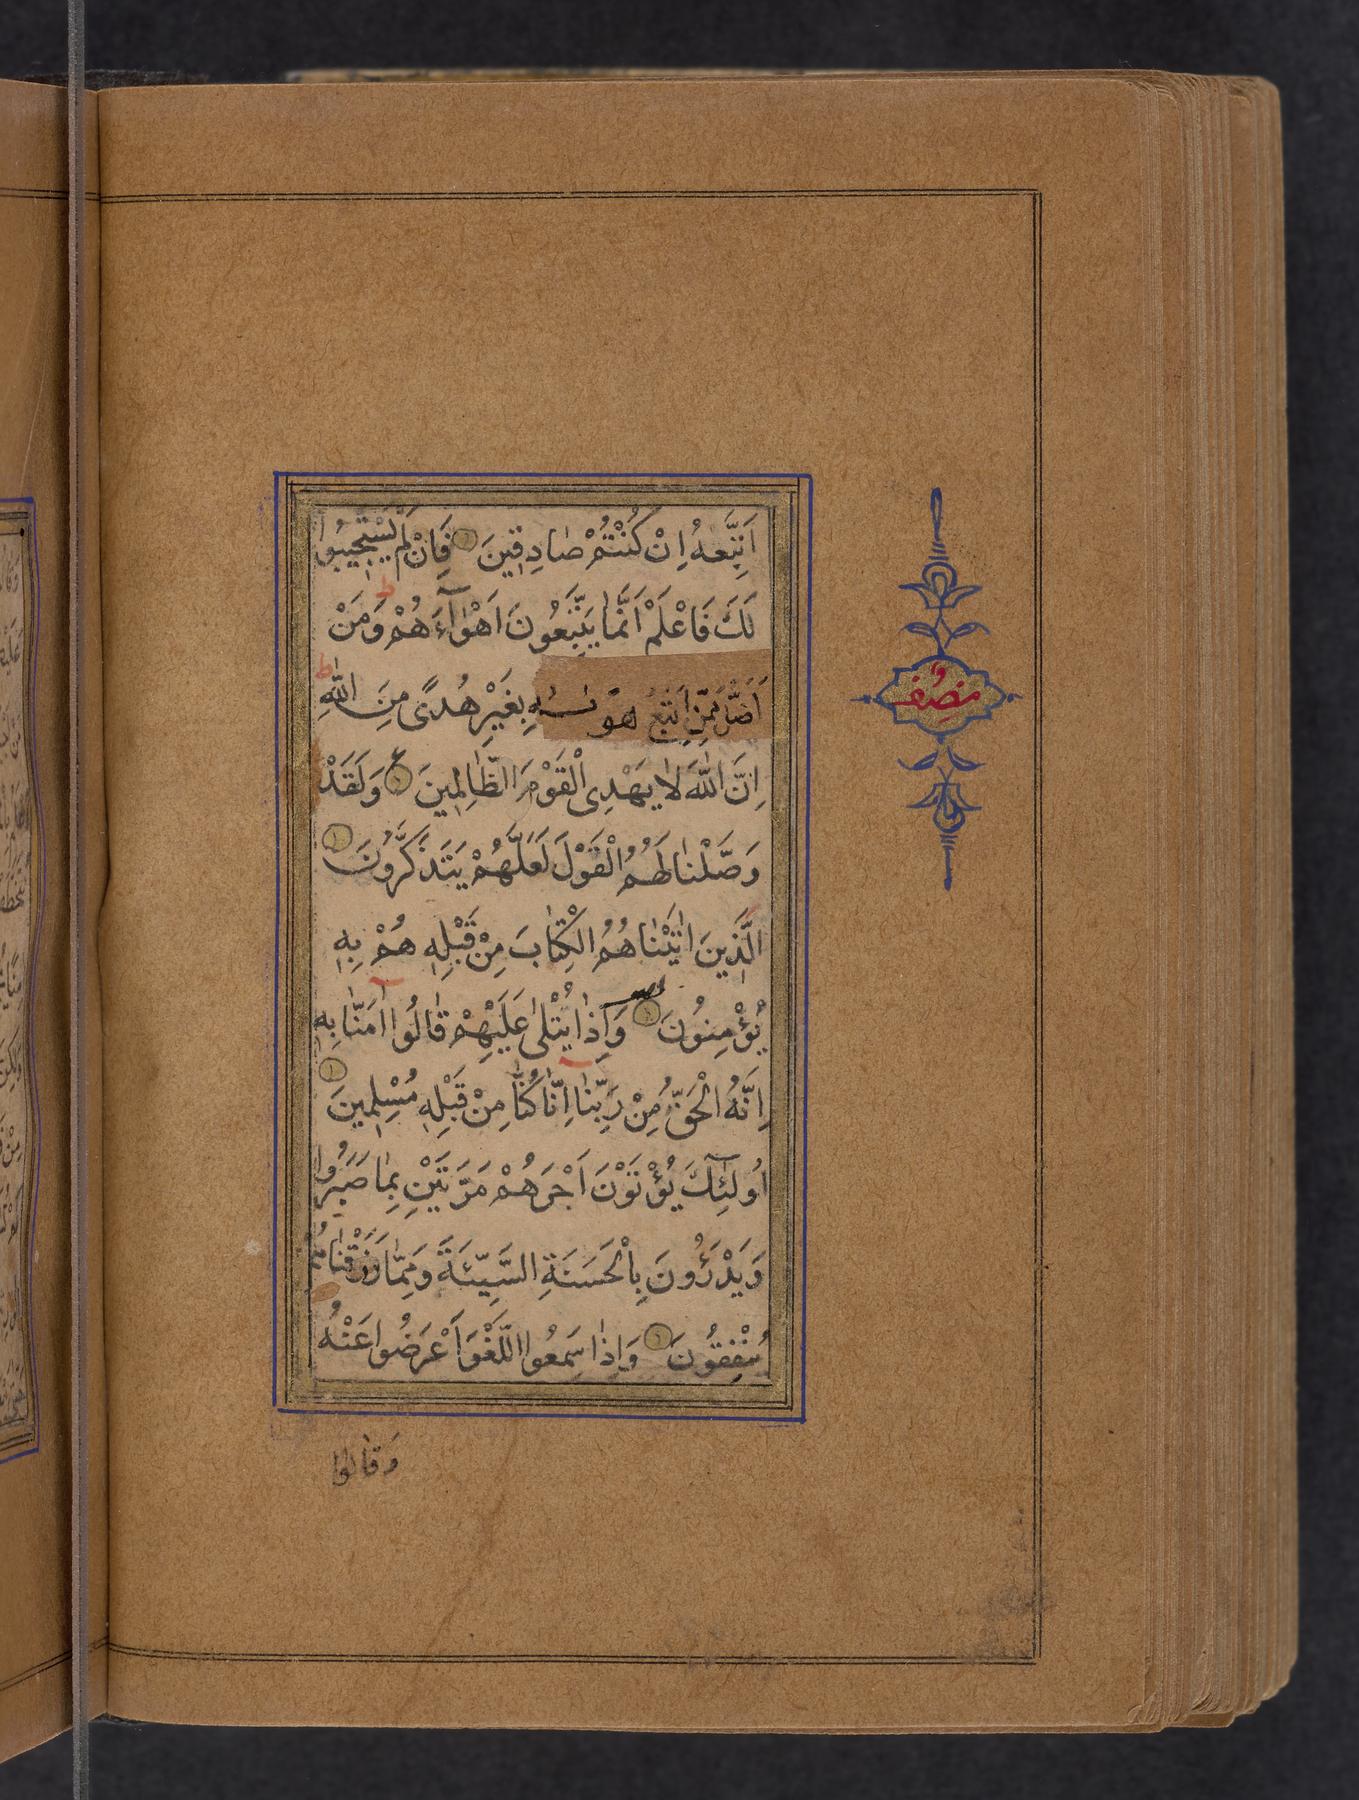 اَتَّبِعْهُ اِنْ كُنْتُمْ صٰادِقٖينَ فَاِنْ لَمْ يَسْتَجٖيبُوا
لَكَ فَاعْلَمْ اَنَّمٰا يَتَّبِعُونَ اَهْوٰآءَهُمْ ط وَمَنْ
اَضَلُّ مِمَّنِ اتَّبَعَ هَوٰيهُ بِغَيْرِ هُدًى مِنَ اللّٰهِ ط
اِنَّ اللّٰهَ لٰا يَهْدِى الْقَوْمَ الظّٰالِمٖينَ ع وَلَقَدْ
وَصَّلْنٰا لَهُمُ الْقَوْلَ لَعَلَّهُمْ يَتَذَكَّرُونَ
الَّذٖينَ اٰتَيْنٰاهُمُ الْكِتٰابَ مِنْ قَبْلِهٖ هُمْ بِهٖ
يُؤْمِنُونَ وَاِذٰا يُتْلٰى عَلَيْهِمْ قٰالُوا اٰمَنّٰا بِهٖ
اِنَّهُ الْحَقُّ مِنْ رَبِّنٰا اِنّٰا كُنّٰا مِنْ قَبْلِهٖ مُسْلِمٖينَ
اُولٰئِكَ يُؤْتَوْنَ اَجْرَهُمْ مَرَّتَيْنِ بِمٰا صَبَرُوا
وَيَدْرَؤُنَ بِالْحَسَنَةِ السَّيِّئَةَ وَمِمّٰا رَزَقْنٰاهُمْ
يُنْفِقُونَ وَاِذٰا سَمِعُوا اللَّغْوَ اَعْرَضُوا عَنْهُ
وَقٰالُوا